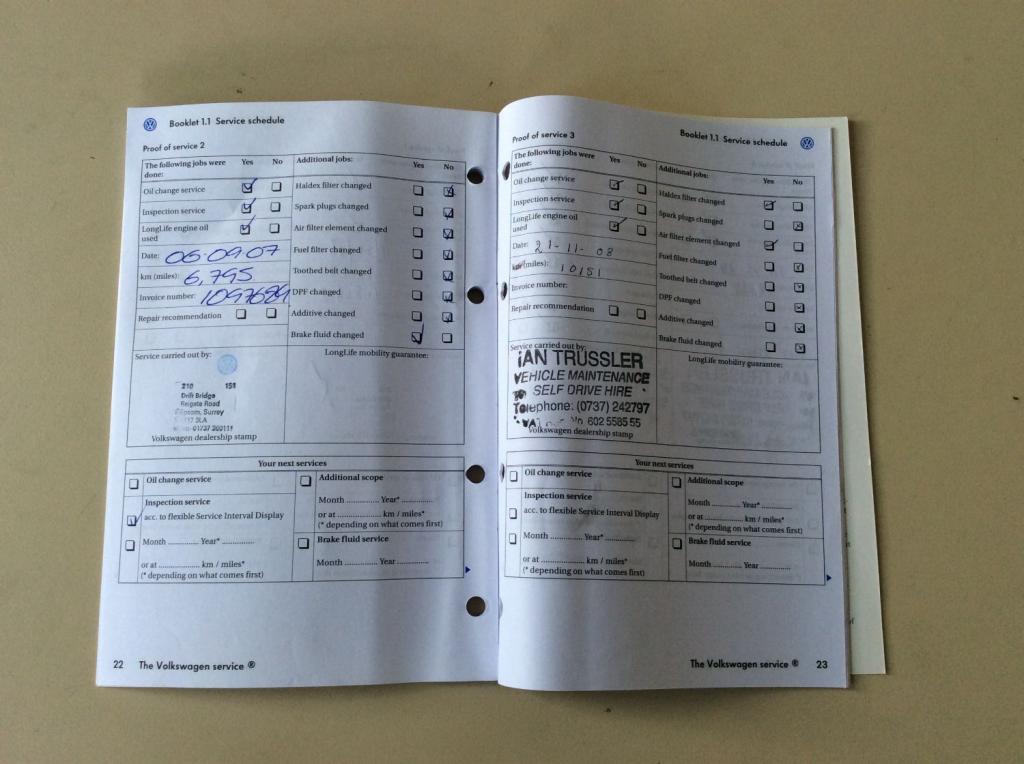 Booklet 1.1 Service schedule
Proof of service 2
The following jobs were done: Yes No
Oil change service
Inspection service
LongLife engine oil used
Date: 06.09.07
km (miles): 6,795
Invoice number: 1097689
Repair recommendation
Additional jobs: Yes No
Haldex filter changed
Spark plugs changed
Air filter element changed
Fuel filter changed
Toothed belt changed
DPF changed
Additive changed
Brake fluid changed
Service carried out by:
210 151
Drift Bridge
Reigate Road
Epsom, Surrey
Volkswagen dealership stamp
LongLife mobility guarantee:
Your next services
Oil change service
Inspection service
acc. to flexible Service Interval Display
Month ............. Year* ..............
or at ................. km / miles*
(* depending on what comes first)
Additional scope
Month ............. Year* .............
or at ................. km / miles*
(* depending on what comes first)
Brake fluid service
Month ............. Year .............
22 The Volkswagen service ®
Booklet 1.1 Service schedule
Proof of service 3
The following jobs were done: Yes No
Oil change service
Inspection service
LongLife engine oil used
Date: 21-11-08
km (miles): 10151
Invoice number:
Repair recommendation
Additional jobs: Yes No
Haldex filter changed
Spark plugs changed
Air filter element changed
Fuel filter changed
Toothed belt changed
DPF changed
Additive changed
Brake fluid changed
Service carried out by:
IAN TRUSSLER
VEHICLE MAINTENANCE
SELF DRIVE HIRE
Telephone: (0737) 242797
No 602 5585 55
Volkswagen dealership stamp
LongLife mobility guarantee:
Your next services
Oil change service
Inspection service
acc. to flexible Service Interval Display
Month ............. Year* ..............
or at ................. km / miles*
(* depending on what comes first)
Additional scope
Month ............. Year* .............
or at ................. km / miles*
(* depending on what comes first)
Brake fluid service
Month ............. Year .............
The Volkswagen service ® 23